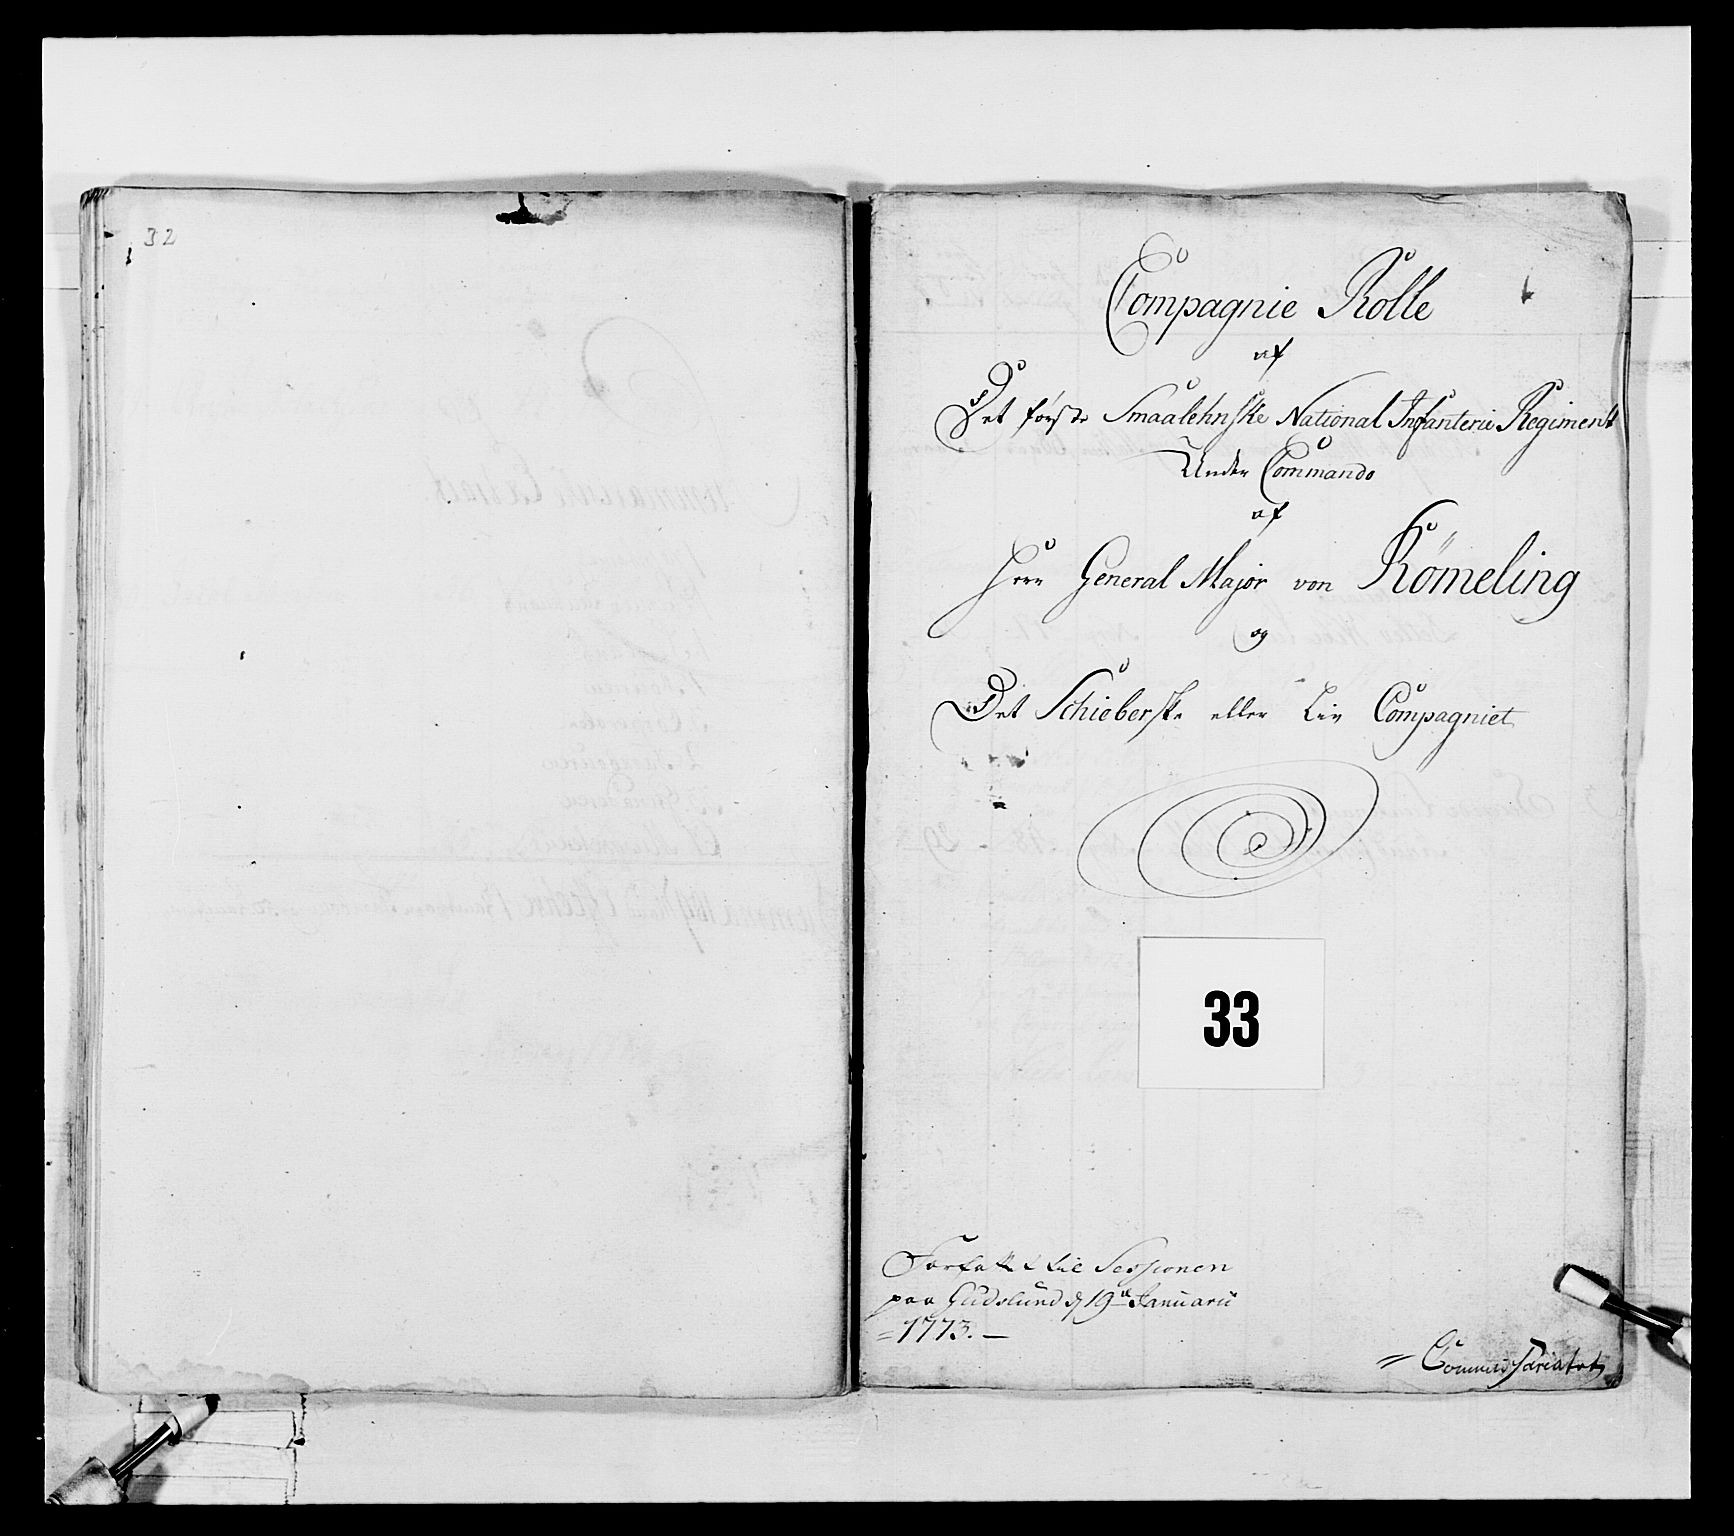 32
Compagnie Rolle
af
Det første Smaalehnske National Infanterie Regiment
Under Commando
af
Herr General Major von Römeling
og
Det Schieberske eller Liv Compagniet
33
Forfatted til Sessionen
paa Gudslund d 19de Januarii
=1773.—
= Commissariatet